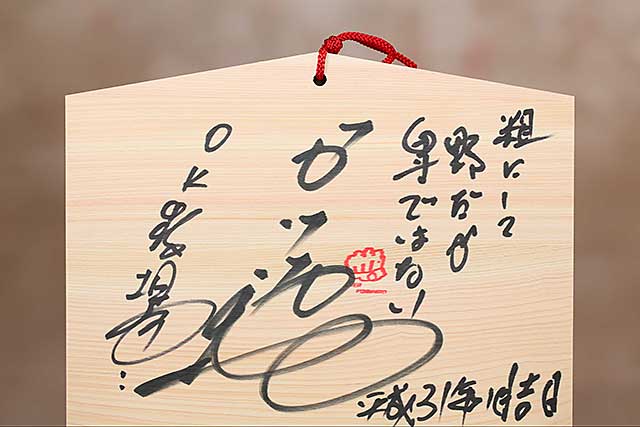 粗にして
野だが
卑ではない
ガッツ石松
OK牧場
平成31年1月吉日